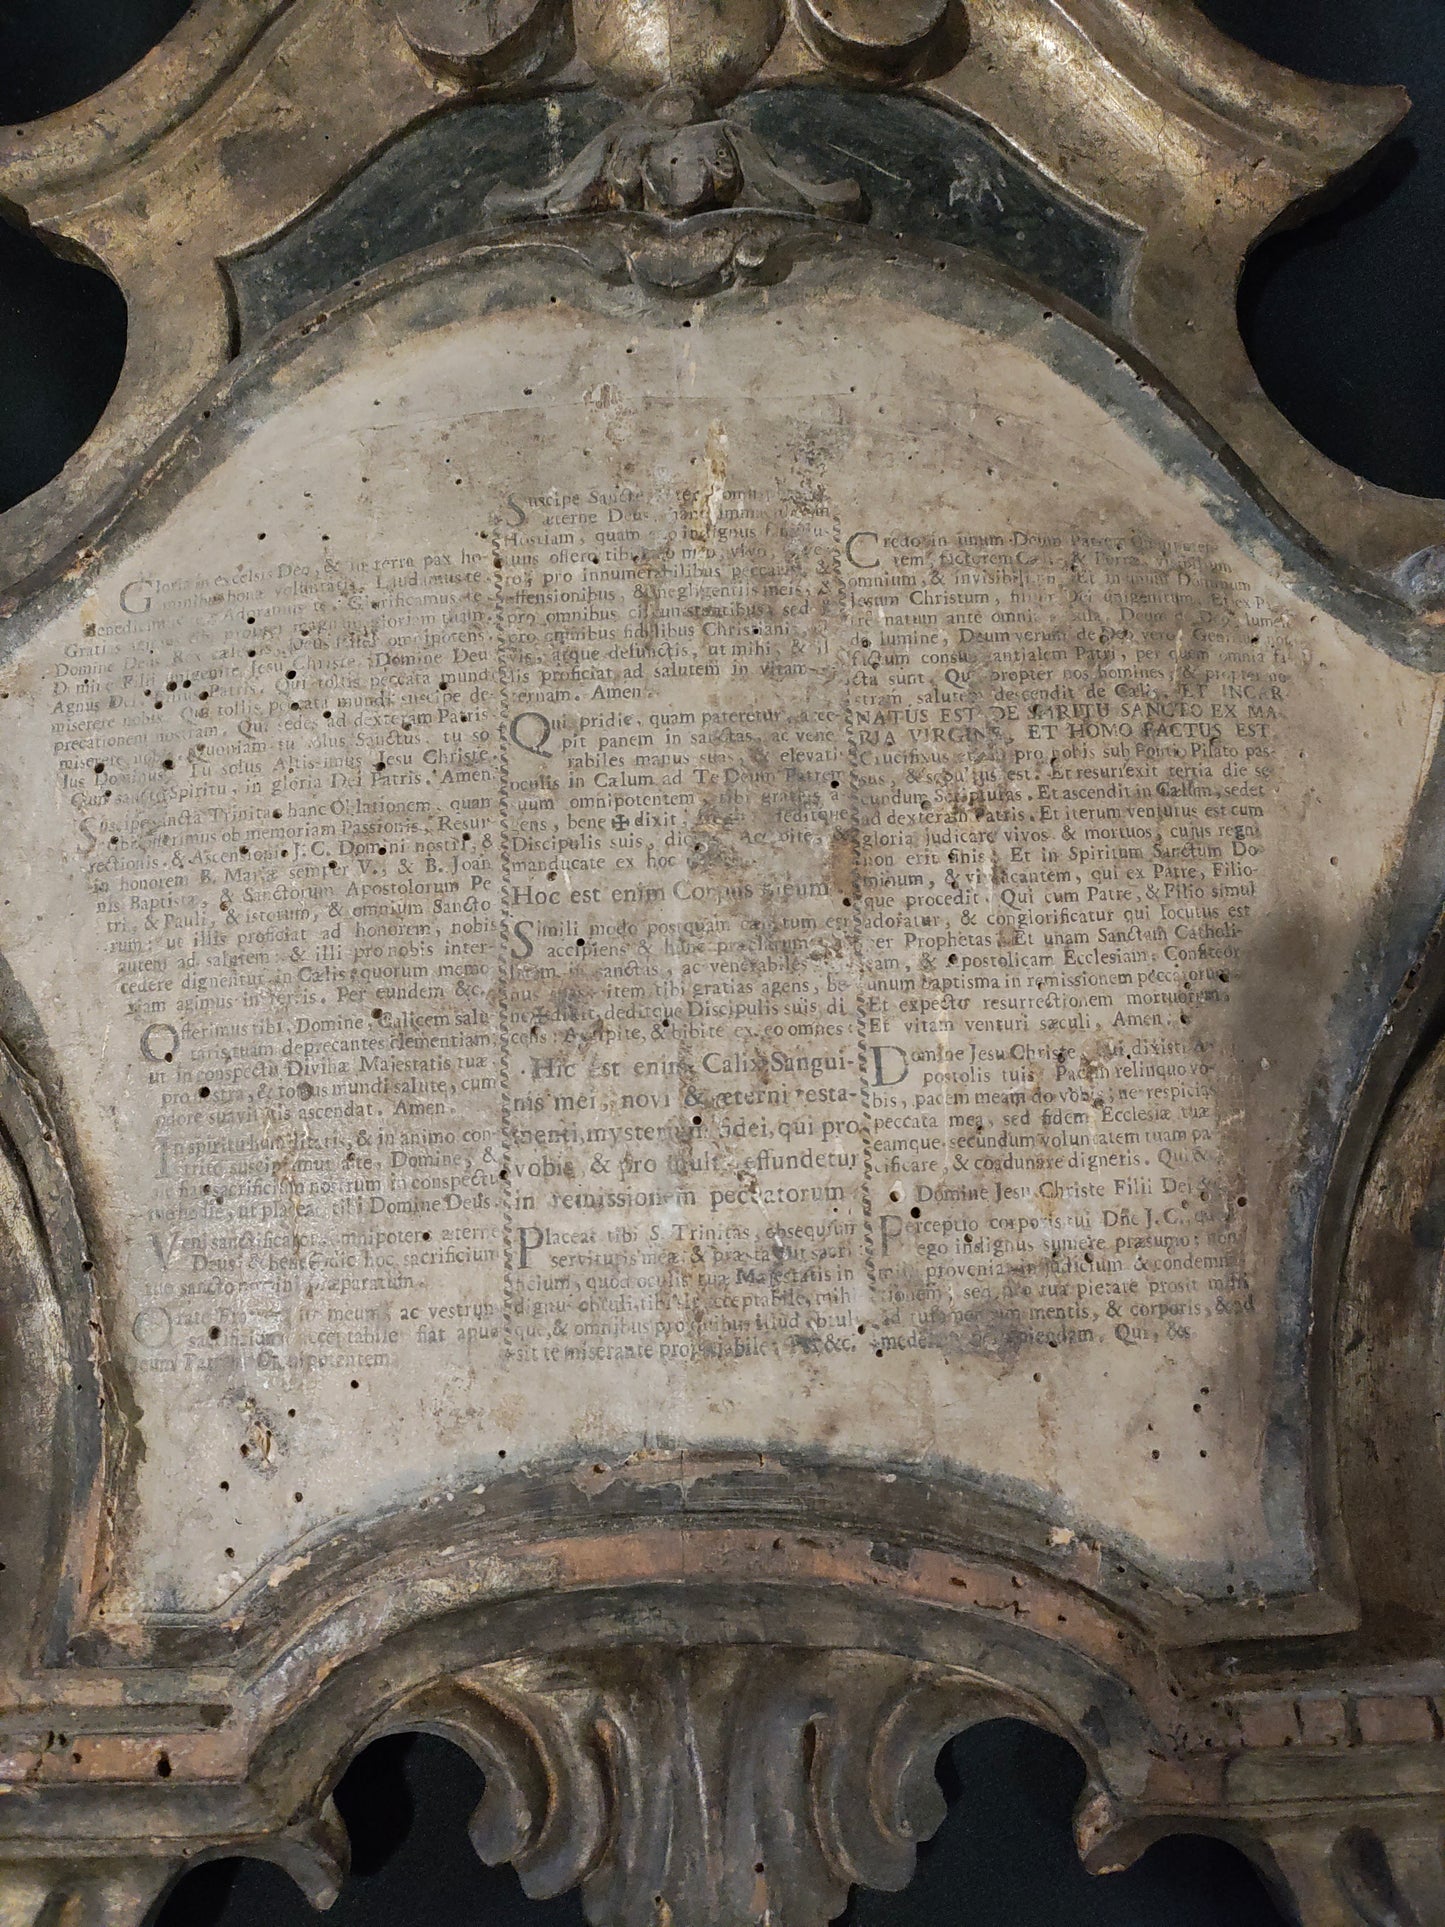 Gloria in excelsis Deo, & in terra pax ho-
minibus bonæ voluntatis. Laudamus te.
Benedicimus te. Adoramus te. Glorificamus te.
Gratias propter magnam gloriam tuam.
Domine Deus Rex cælestis, Deus Pater omnipotens.
Domine Fili unigenite Jesu Christe. Domine Deu
Agnus Dei, Patris. Qui tollis peccata mundi
miserere nobis. Qui tollis peccata mundi suscipe de-
precationem nostram. Qui sedes ad dexteram Patris
miserere nobis. Quoniam tu solus Sanctus. tu so
lus Dominus. Tu solus Altissimus Jesu Christe.
Cum sancto Spiritu, in gloria Dei Patris. Amen.
Suscipe sancta Trinitas hanc Oblationem, quam
tibi offerimus ob memoriam Passionis, Resur-
rectionis, & Ascensionis J. C. Domini nostri, &
in honorem B. Mariæ semper V., & B. Joan
nis Baptistæ, & Sanctorum Apostolorum Pe
tri, & Pauli, & istorum, & omnium Sancto
rum: ut illis proficiat ad honorem, nobis
autem ad salutem: & illi pro nobis inter-
cedere dignentur in Cælis, quorum memo
riam agimus in terris. Per eundem &c.
Offerimus tibi, Domine, Calicem salu
taris, tuam deprecantes clementiam;
ut in conspectu Divinæ Majestatis tuæ
pro nostra, & totius mundi salute, cum
odore suavitatis ascendat. Amen.
In spiritu humilitatis, & in animo con-
trito suscipiamur a te, Domine, &
sic fiat sacrificium nostrum in conspectu
tuo hodie, ut placeat tibi Domine Deus.
Veni sanctificator omnipotens æterne
Deus: & benedic hoc sacrificium
tuo sancto nomini præparatum.
Orate Fratres, ut meum, ac vestrum
sacrificium acceptabile fiat apud
Deum Patrem Omnipotentem.
Suscipe Sancte Pater Domine
æterne Deus, hanc immaculatam
Hostiam, quam ego indignus famulus
tuus offero tibi Deo meo, vivo, & ve
ro, pro innumerabilibus peccatis, &
offensionibus, & negligentiis meis, &
pro omnibus circumstantibus, sed
pro omnibus fidelibus Christianis
vis, atque defunctis, ut mihi, & il
lis proficiat ad salutem in vitam
æternam. Amen.
Qui pridie, quam pateretur, acce-
pit panem in sanctas, ac vene
rabiles manus suas, & elevatis
oculis in Cælum ad Te Deum Patrem
suum omnipotentem, tibi gratias a
gens, bene ✠ dixit, fregit, deditque
Discipulis suis, dicens: Accipite, &
manducate ex hoc
Hoc est enim Corpus meum.
Simili modo postquam cænatum est
accipiens & hunc præclarum
licem in sanctas, ac venerabiles
nus suas: item tibi gratias agens, be-
ne ✠ dixit, deditque Discipulis suis di
cens: Accipite, & bibite ex eo omnes:
Hic est enim Calix Sangui-
nis mei, novi & æterni testa-
menti, mysterium fidei, qui pro
vobis, & pro multis effundetur
in remissionem peccatorum.
Placeat tibi S. Trinitas, obsequium
servitutis meæ: & præsta, ut sacri
ficium, quod oculis tuæ Majestatis in
dignus obtuli, tibi sit acceptabile, mihi
que, & omnibus pro quibus illud obtuli,
sit te miserante propitiabile. Per &c.
Credo in unum Deum Patrem Omnipoten-
tem, factorem Cæli, & Terræ, visibilium
omnium, & invisibilium. Et in unum Dominum
Jesum Christum, filium Dei unigenitum. Et ex Pa
tre natum ante omnia sæcula, Deum de Deo, lumen
de lumine, Deum verum de Deo vero. Genitum non
factum consubstantialem Patri, per quem omnia fa
cta sunt. Qui propter nos homines, & propter no
stram salutem descendit de Cælis. ET INCAR
NATUS EST DE SPIRITU SANCTO EX MA
RIA VIRGINE, ET HOMO FACTUS EST.
Crucifixus etiam pro nobis sub Pontio Pilato pas-
sus, & sepultus est. Et resurrexit tertia die se
cundum Scripturas. Et ascendit in Cælum, sedet
ad dexteram Patris. Et iterum venturus est cum
gloria judicare vivos & mortuos, cujus regni
non erit finis. Et in Spiritum Sanctum Do-
minum, & vivificantem, qui ex Patre, Filio-
que procedit. Qui cum Patre, & Filio simul
adoratur, & conglorificatur qui locutus est
per Prophetas. Et unam Sanctam Catholi-
cam, & Apostolicam Ecclesiam. Confiteor
unum baptisma in remissionem peccatorum.
Et expecto resurrectionem mortuorum.
Et vitam venturi sæculi. Amen.
Domine Jesu Christe, qui dixisti A-
postolis tuis: Pacem relinquo vo-
bis, pacem meam do vobis; ne respicias
peccata mea, sed fidem Ecclesiæ tuæ
eamque secundum voluntatem tuam pa
cificare, & coadunare digneris. Qui &
Domine Jesu Christe Filii Dei &
Perceptio corporis tui Dñe J. C., quod
ego indignus sumere præsumo: non
mihi proveniat in judicium & condemna
tionem; sed pro tua pietate prosit mihi
ad tutamentum mentis, & corporis, & ad
medelam percipiendam. Qui, &c